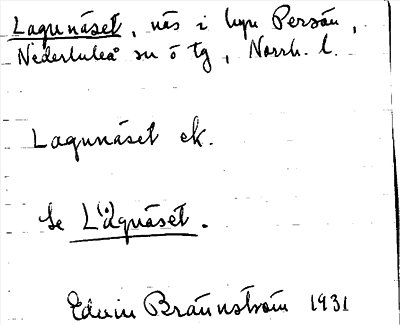 Lagunäset, näs i byn Persön,
Nederluleå sn o tg, Norrb. l.
Lagunäset ek.
Se Lagnäset.
Edvin Brännström 1931